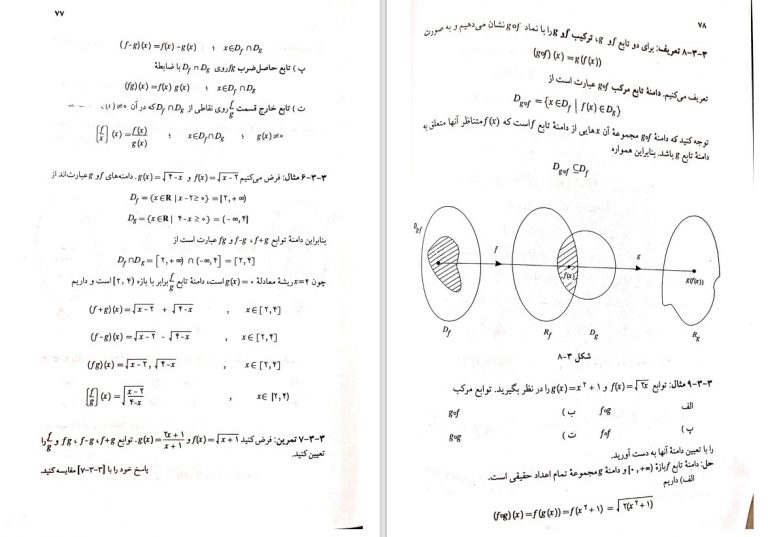 ۷۷
(f-g)(x) = f(x) - g(x) ؛ x∈D_f ∩ D_g
پ) تابع حاصل‌ضرب fg روی D_f ∩ D_g با ضابطهٔ
(fg)(x) = f(x) g(x) ؛ x∈D_f ∩ D_g
ت) تابع خارج قسمت f/g روی نقاطی از D_f ∩ D_g که در آن
[f/x](x) = f(x)/g(x) ؛ x∈D_f ∩ D_g ؛ g(x)≠۰
۳-۳-۶ مثال: فرض می‌کنیم f(x)=√(x-۲) و g(x)=√(۴-x). دامنه‌های f و g عبارت‌اند از
D_f = {x∈R | x-۲≥۰} = [۲,+∞)
D_g = {x∈R | ۴-x≥۰} = (-∞,۴]
بنابراین دامنهٔ توابع f+g، f-g و fg عبارت است از
D_f ∩ D_g = [۲,+∞) ∩ (-∞,۴] = [۲,۴]
چون x=۴ ریشهٔ معادلهٔ g(x)=۰ است، دامنهٔ تابع f/g برابر با بازه [۲,۴) است و داریم
(f+g)(x) = √(x-۲) + √(۴-x) , x∈[۲,۴]
(f-g)(x) = √(x-۲) - √(۴-x) , x∈[۲,۴]
(fg)(x) = √(x-۲), √(۴-x) , x∈[۲,۴]
[f/g](x) = √((x-۲)/(۴-x)) , x∈[۲,۴)
۳-۳-۷ تمرین: فرض کنید f(x)=√(x+۱) و g(x)=(۲x+۱)/(x+۱). توابع f+g، f-g، fg و f/g را
تعیین کنید.
پاسخ خود را با [۳-۳-۷] مقایسه کنید.
۷۸
۳-۳-۸ تعریف: برای دو تابع f و g، ترکیب f و g را با نماد gof نشان می‌دهیم و به صورت
(gof)(x) = g(f(x))
تعریف می‌کنیم. دامنهٔ تابع مرکب gof عبارت است از
D_gof = {x∈D_f | f(x)∈D_g}
توجه کنید که دامنهٔ gof مجموعهٔ آن xهایی از دامنهٔ تابع f است که f(x) متناظر آنها متعلق به
دامنهٔ تابع g باشد. بنابراین همواره
D_gof ⊆ D_f
D_gof
f
f(x)
g
g(f(x))
D_f
R_f
D_g
R_g
شکل ۳-۸
۳-۳-۹ مثال: توابع f(x)=√(۲x) و g(x)=x²+۱ را در نظر بگیرید. توابع مرکب
الف fog ب) gof
پ) fof ت) gog
را با تعیین دامنهٔ آنها به دست آورید.
حل: دامنهٔ تابع f بازهٔ [۰,+∞) و دامنهٔ g مجموعهٔ تمام اعداد حقیقی است.
الف) داریم
(fog)(x) = f(g(x)) = f(x²+۱) = √(۲(x²+۱))